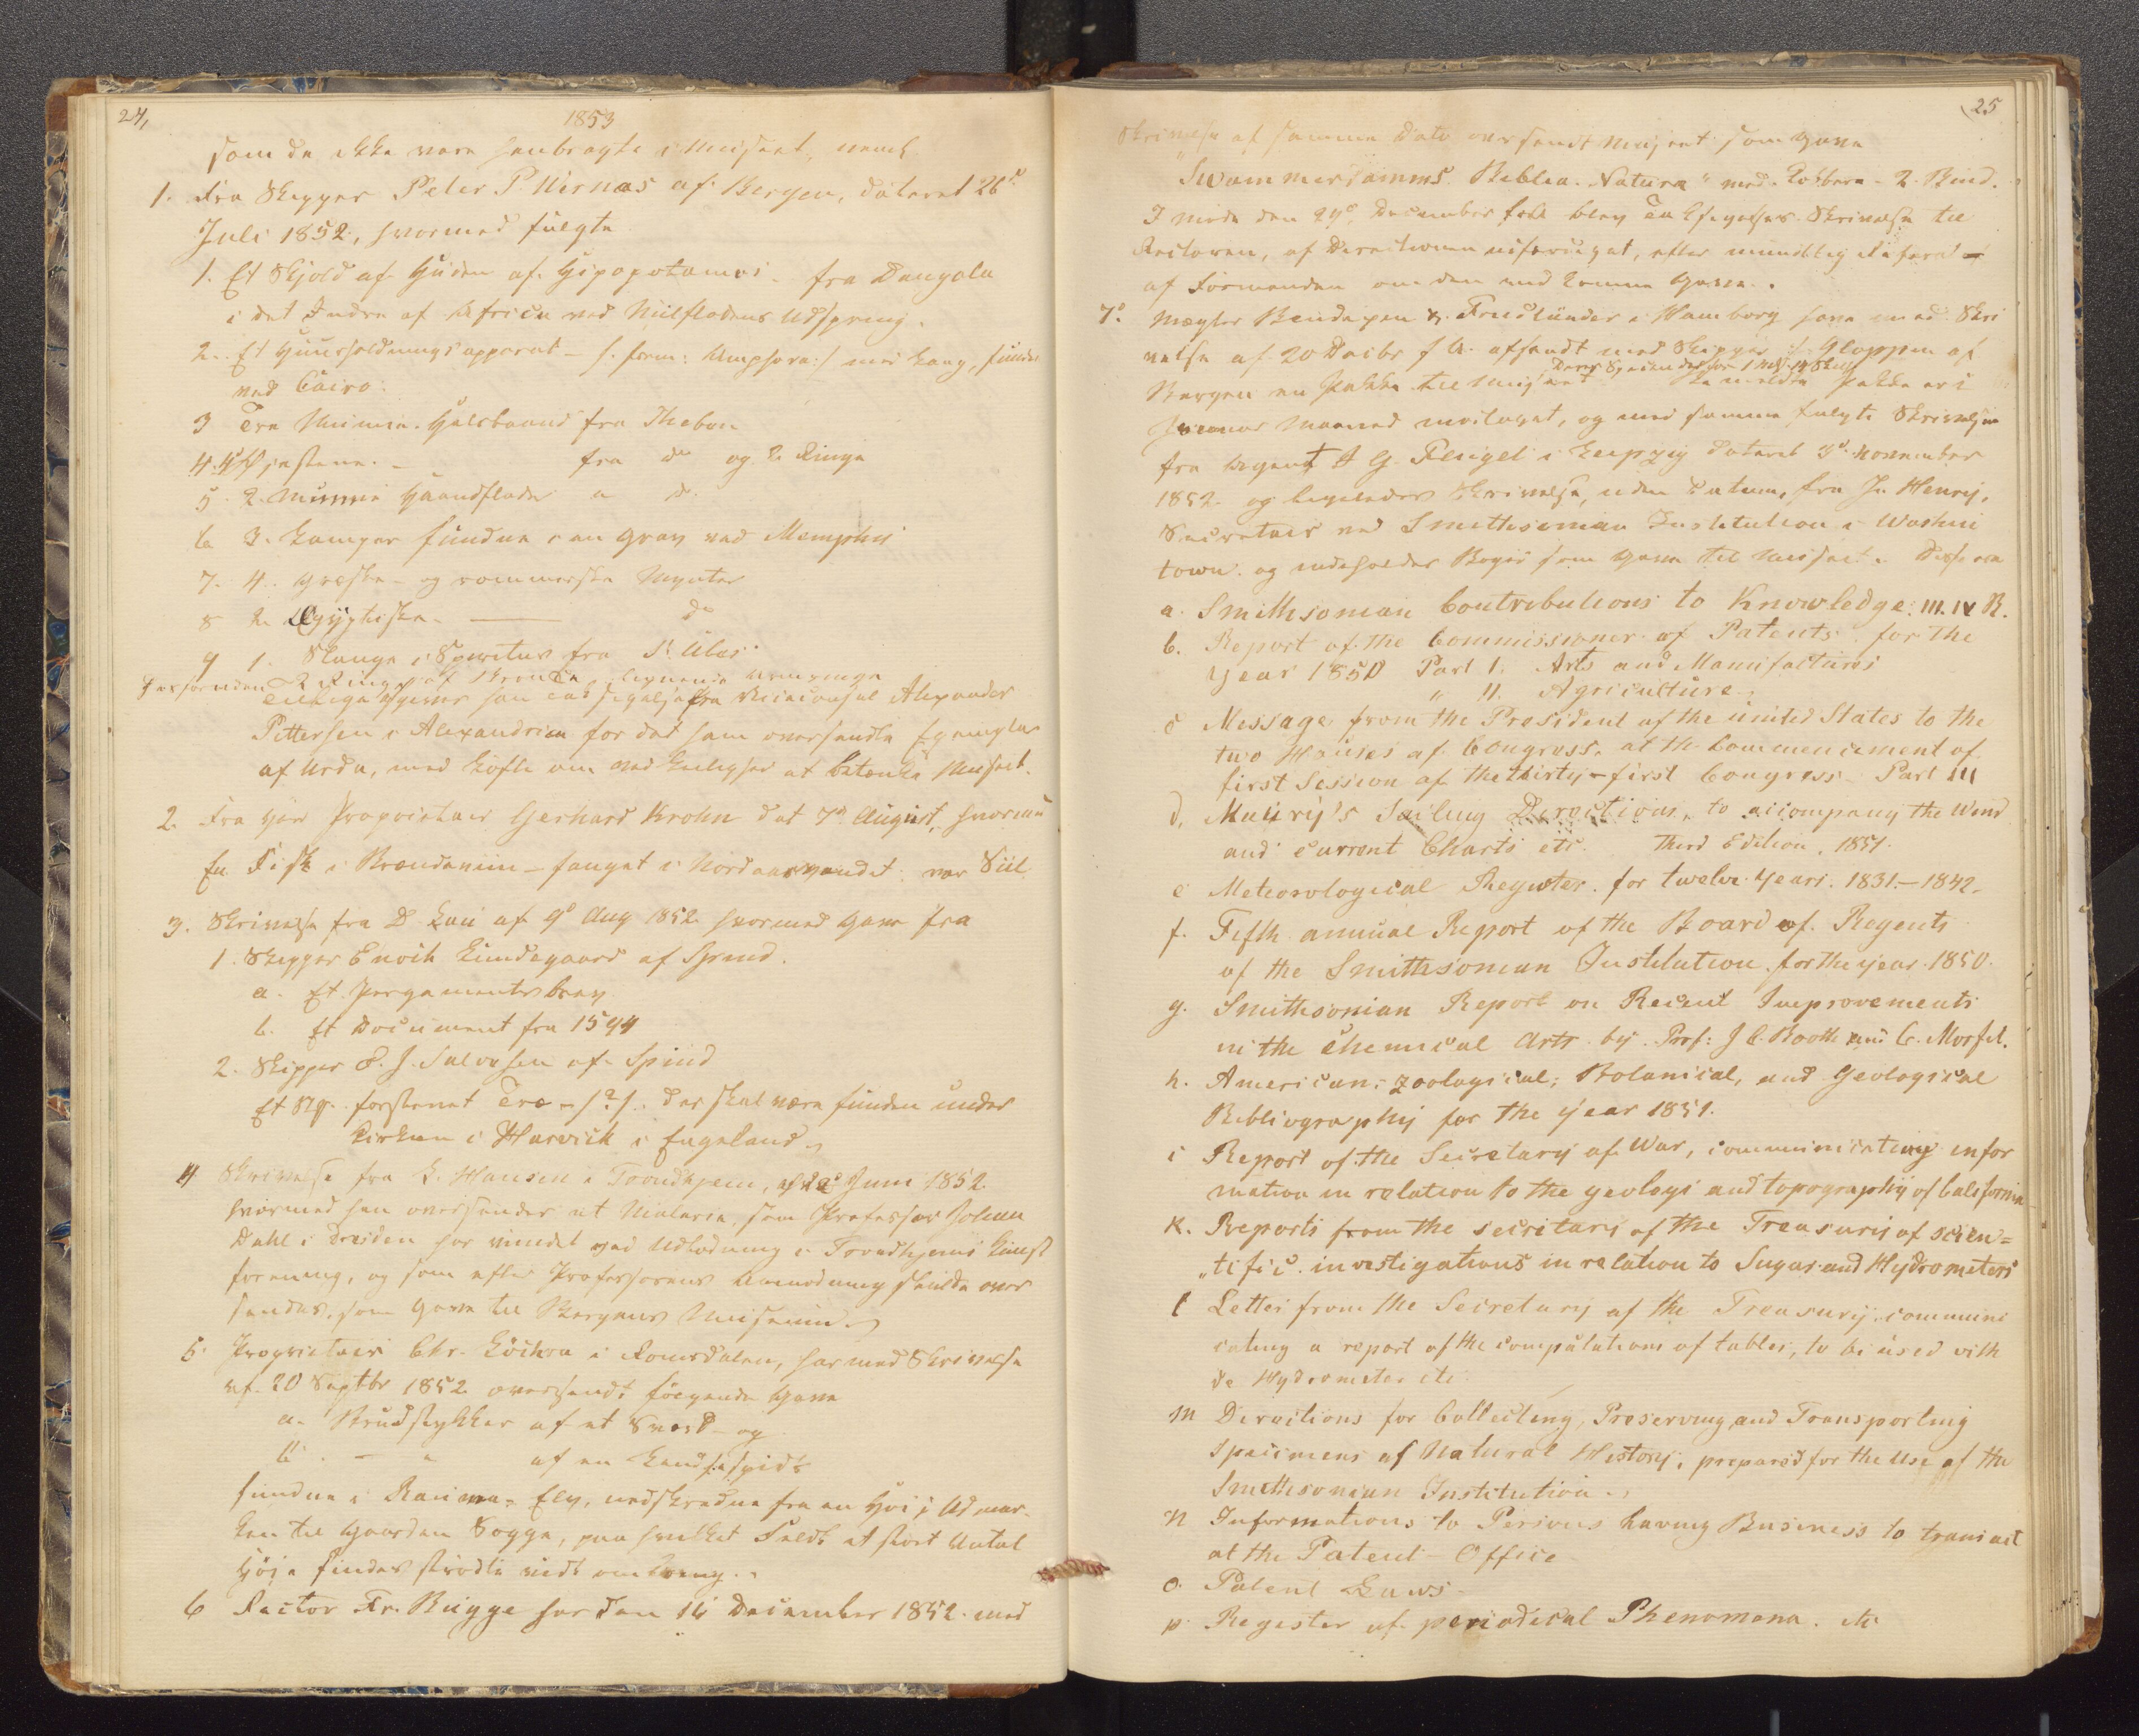 24,
1853
som da ikke vare henbragte i Museet, nemlig
1. Fra Skipper Peter P. Wernoes af Bergen, dateret 26d
Juli 1852, hvormed fulgte
1. Et Skjold af Huden af Hipopotamus fra Dongola
i det Indre af Africa ved Niilflodens Udspring.
2. Et Huusholdningsapparat - /: form: Amphora :/ med Laag, funden
ved Cairo.
3 Tre Mumie Halsbaand fra Theben
4. 4 fra do og 2 Ringe
5. 2. Mumie Haandflader " d.
6 3. Lamper fundne i en Grav ved Memphis
7. 4. Græske- og rommerske Mynter
8 2. Egyptiske. — do
9 1. Slange i Spiritus fra St Ubes.
Forhenden 2 Ringe af Bronce lignende Armringe
Tillige Hjemsendt fra Viceconsul Alexander
Pettersen i Alexandrien for det ham oversendte Exemplar
af Urda, med Løfte om ved Leilighed at betænke Museet.
2. Fra Hr Proprietair Gerhard Krohn dat 7d August, hvormed
En Fisk i Brændeviin - fanget i Nordaasvandet: var Siil
3. Skrivelse fra D af 9d Aug 1852 hvormed Gave fra
1. Skipper Enoch Lundegaard af Spind.
a. Et Pergamentsbrev
b. Et Document fra 1594
2. Skipper O. J. Salvesen af Spind
Et St. forstenet Træ - /?/. der skal være funden under
Kirken i Harwich i Engeland
4 Skrivelse fra L. Hansen i Trondhjem, af Juni 1852
hvormed han oversender et Malerie, som Professor Johan
Dahl i Dresden har vundet ved Udlodning i Trondhjems Kunst
forening, og som efter Professorens Anmodning skulde over
sendes, som Gave til Bergens Museum.
5. Proprietair Chr. Lochra i Romsdalen, har med Skrivelse
af 20 Septbr 1852 oversendt følgende Gave
a. Brudstykker af et Sværd - og
b. - " af en Landsespids
fundne i Rauma - Elv, nedskredne fra en Høi i Udmar-
ken til Gaarden Sogge, paa hvilket Feldt et stort Antal
Høie findes strødte vidt omkring.
6 Rector Fr. Bugge har den 14 December 1852 med
25
Skrivelse af samme Dato oversendt Museet som Gave
"Swammerdamms Biblia Natura" med Kobbere - 2 Bind.
I Møde den 29d December blev Taksigelses Skrivelse til
Rectoren, af Directionen udfærdiget, efter mundtlig
af Formanden om den modtagne Gave.
7d. Mægler Bendixen & Friedländer i Hamborg have med Skri
velse af 20 Decbr f. A. afsendt med Skipper J. Gloppen af
Bergen en Pakke til Museet
Deres Speciender for 1 Mk 14 Skill
Pakke er i
Januar Maaned modtaget, og med samme fulgte Skrivelse
fra Agent J G Flügel i Leipzig dateret 3d November
1852 og ligeledes Skrivelse, uden Datum, fra Jn Henry,
Secretair ved Smithsonian Institution i Washin
town og indeholder Bøger som Gave til Museet. Disse ere
a. Smithsonian Contributions to Knowledge. III. IV B.
b. Report of the Commissioner of Patents for the
year 1850 Part 1. Arts and Manufactures
" 11. Agriculture.
c Message from the President of the united States to the
two Houses of Congress. at the Commencement of
first Session of the thirty-first Congress - Part III
d. Maury's Sailing Directions, to accompany the Wind
and current Charts etc. Third Edition. 1851.
e Meteorological Register for twelve Years. 1831.-1842.
f. Fifth annual Report of the Board of Regents
of the Smithsonian Institution for the year 1850.
g. Smithsonian Report on Recent Improvements
in the Chemical Arts by Prof: J C. Booth and C. Morfit.
h. American, Zoological, Botanical, and Geological
Bibliography for the year 1851.
i Report of the Secretary of War, communicating infor
mation in relation to the geology and topography of California
K. Reports from the secretary of the Treasury of scien=
"tific investigations in relation to Sugar and Hydrometers
l Letter from the Secretary of the Treasury, communi
cating a report of the computations of tables, to be used with
de Hydrometer etc.
m Directions for Collecting, Preserving and Transporting
Specimens of Natural History, prepared for the Use of the
Smithsonian Institution.
n Informations to Persons having Business to transact
at the Patent-Office
o. Patent Laws.
p. Register of periodical Phenomena. etc